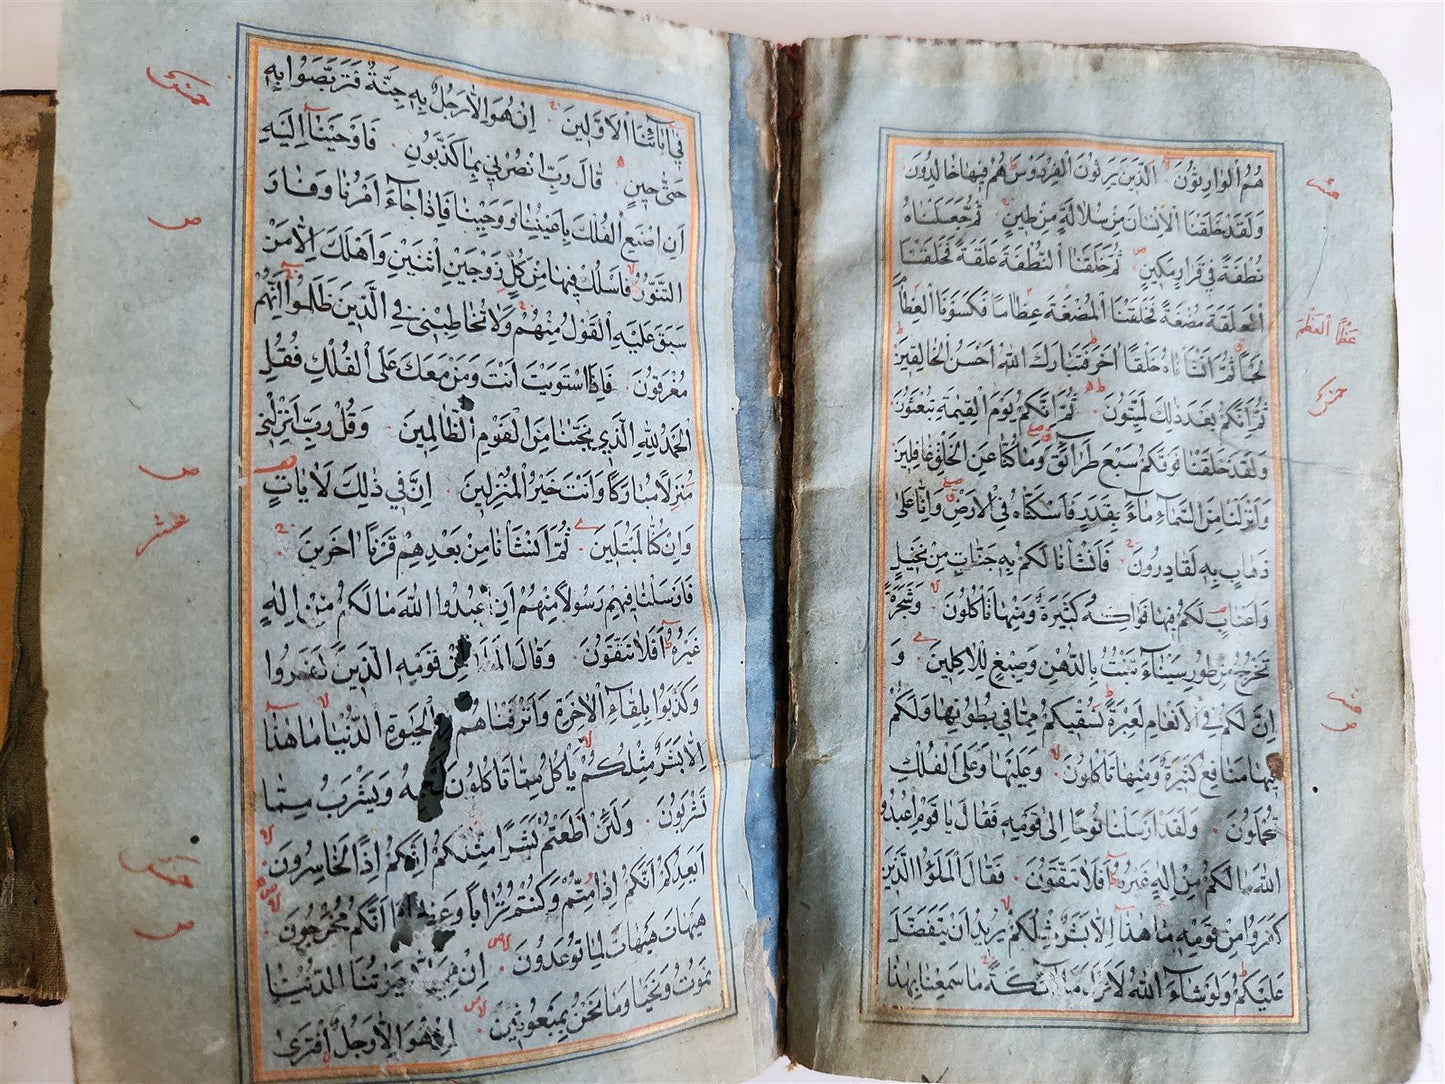 هُمُ الْوَارِثُونَ الَّذِينَ يَرِثُونَ الْفِرْدَوْسَ هُمْ فِيهَا خَالِدُونَ
وَلَقَدْ خَلَقْنَا الْاِنْسَانَ مِنْ سُلَالَةٍ مِنْ طِينٍ ثُمَّ جَعَلْنَاهُ
نُطْفَةً فِي قَرَارٍ مَكِينٍ ثُمَّ خَلَقْنَا النُّطْفَةَ عَلَقَةً فَخَلَقْنَا
الْعَلَقَةَ مُضْغَةً فَخَلَقْنَا الْمُضْغَةَ عِظَامًا فَكَسَوْنَا الْعِظَامَ
لَحْمًا ثُمَّ اَنْشَأْنَاهُ خَلْقًا اٰخَرَ فَتَبَارَكَ اللّٰهُ اَحْسَنُ الْخَالِقِينَ
ثُمَّ اِنَّكُمْ بَعْدَ ذٰلِكَ لَمَيِّتُونَ ثُمَّ اِنَّكُمْ يَوْمَ الْقِيٰمَةِ تُبْعَثُونَ
وَلَقَدْ خَلَقْنَا فَوْقَكُمْ سَبْعَ طَرَائِقَ وَمَا كُنَّا عَنِ الْخَلْقِ غَافِلِينَ
وَاَنْزَلْنَا مِنَ السَّمَاءِ مَاءً بِقَدَرٍ فَاَسْكَنَّاهُ فِي الْاَرْضِ وَاِنَّا عَلٰى
ذَهَابٍ بِهِ لَقَادِرُونَ فَاَنْشَأْنَا لَكُمْ بِهِ جَنَّاتٍ مِنْ نَخِيلٍ
وَاَعْنَابٍ لَكُمْ فِيهَا فَوَاكِهُ كَثِيرَةٌ وَمِنْهَا تَأْكُلُونَ وَشَجَرَةً
تَخْرُجُ مِنْ طُورِ سَيْنَاءَ تَنْبُتُ بِالدُّهْنِ وَصِبْغٍ لِلْاٰكِلِينَ وَ
اِنَّ لَكُمْ فِي الْاَنْعَامِ لَعِبْرَةً نُسْقِيكُمْ مِمَّا فِي بُطُونِهَا وَلَكُمْ
فِيهَا مَنَافِعُ كَثِيرَةٌ وَمِنْهَا تَأْكُلُونَ وَعَلَيْهَا وَعَلَى الْفُلْكِ
تُحْمَلُونَ وَلَقَدْ اَرْسَلْنَا نُوحًا اِلٰى قَوْمِهِ فَقَالَ يَا قَوْمِ اعْبُدُوا
اللّٰهَ مَا لَكُمْ مِنْ اِلٰهٍ غَيْرُهُ اَفَلَا تَتَّقُونَ فَقَالَ الْمَلَؤُا الَّذِينَ
كَفَرُوا مِنْ قَوْمِهِ مَا هٰذَا اِلَّا بَشَرٌ مِثْلُكُمْ يُرِيدُ اَنْ يَتَفَضَّلَ
عَلَيْكُمْ وَلَوْ شَاءَ اللّٰهُ لَاَنْزَلَ مَلَائِكَةً مَا سَمِعْنَا بِهٰذَا
عشر
عَظْمًا الْعَظْمَ
عشر
ص
فِي اٰبَائِنَا الْاَوَّلِينَ اِنْ هُوَ اِلَّا رَجُلٌ بِهِ جِنَّةٌ فَتَرَبَّصُوا بِهِ
حَتّٰى حِينٍ قَالَ رَبِّ انْصُرْنِي بِمَا كَذَّبُونِ فَاَوْحَيْنَا اِلَيْهِ
اَنِ اصْنَعِ الْفُلْكَ بِاَعْيُنِنَا وَوَحْيِنَا فَاِذَا جَاءَ اَمْرُنَا وَفَارَ
التَّنُّورُ فَاسْلُكْ فِيهَا مِنْ كُلٍّ زَوْجَيْنِ اثْنَيْنِ وَاَهْلَكَ اِلَّا مَنْ
سَبَقَ عَلَيْهِ الْقَوْلُ مِنْهُمْ وَلَا تُخَاطِبْنِي فِي الَّذِينَ ظَلَمُوا اِنَّهُمْ
مُغْرَقُونَ فَاِذَا اسْتَوَيْتَ اَنْتَ وَمَنْ مَعَكَ عَلَى الْفُلْكِ فَقُلِ
الْحَمْدُ لِلّٰهِ الَّذِي نَجّٰىنَا مِنَ الْقَوْمِ الظَّالِمِينَ وَقُلْ رَبِّ اَنْزِلْنِي
مُنْزَلًا مُبَارَكًا وَاَنْتَ خَيْرُ الْمُنْزِلِينَ اِنَّ فِي ذٰلِكَ لَاٰيَاتٍ
وَاِنْ كُنَّا لَمُبْتَلِينَ ثُمَّ اَنْشَأْنَا مِنْ بَعْدِهِمْ قَرْنًا اٰخَرِينَ
فَاَرْسَلْنَا فِيهِمْ رَسُولًا مِنْهُمْ اَنِ اعْبُدُوا اللّٰهَ مَا لَكُمْ مِنْ اِلٰهٍ
غَيْرُهُ اَفَلَا تَتَّقُونَ وَقَالَ الْمَلَاُ مِنْ قَوْمِهِ الَّذِينَ كَفَرُوا
وَكَذَّبُوا بِلِقَاءِ الْاٰخِرَةِ وَاَتْرَفْنَاهُمْ الْحَيٰوةِ الدُّنْيَا مَا هٰذَا
اِلَّا بَشَرٌ مِثْلُكُمْ يَأْكُلُ مِمَّا تَأْكُلُونَ مِنْهُ وَيَشْرَبُ مِمَّا
تَشْرَبُونَ وَلَئِنْ اَطَعْتُمْ بَشَرًا مِثْلَكُمْ اِنَّكُمْ اِذًا لَخَاسِرُونَ
اَيَعِدُكُمْ اَنَّكُمْ اِذَا مِتُّمْ وَكُنْتُمْ تُرَابًا وَعِظَامًا اَنَّكُمْ مُخْرَجُونَ
هَيْهَاتَ هَيْهَاتَ لِمَا تُوعَدُونَ اِنْ هِيَ اِلَّا حَيَاتُنَا الدُّنْيَا
نَمُوتُ وَنَحْيَا وَمَا نَحْنُ بِمَبْعُوثِينَ اِنْ هُوَ اِلَّا رَجُلٌ افْتَرٰى
ص
ص
عشر
ص